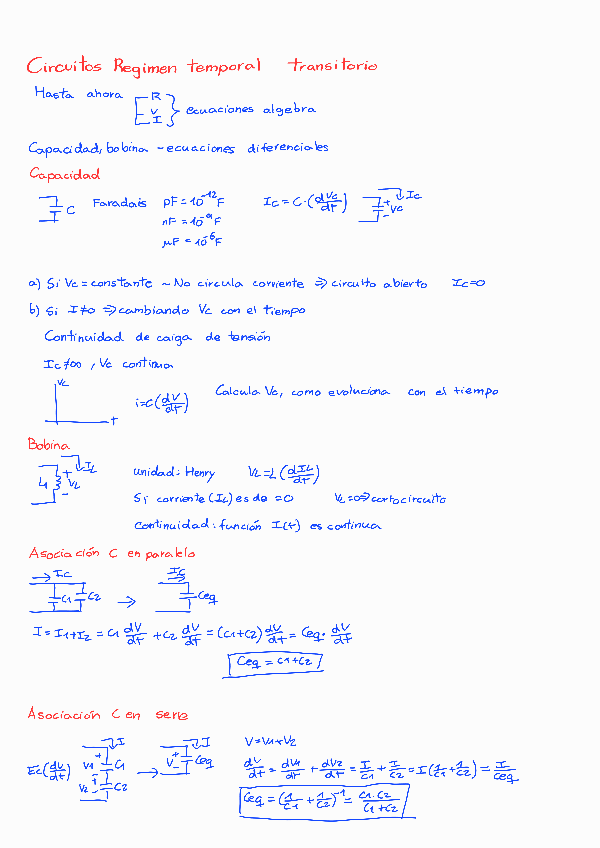 Circuitos Regimen temporal transitorio
Hasta ahora R
V
I
ecuaciones algebra
Capacidad, bobina ~ ecuaciones diferenciales
Capacidad
C Faradais pF = 10^-12 F Ic = C·(dVc/dt) + Vc - Ic
nF = 10^-9 F
μF = 10^-6 F
a) Si Vc = constante ~ No circula corriente ⇒ circuito abierto Ic=0
b) Si I≠0 ⇒ cambiando Vc con el tiempo
Continuidad de caiga de tensión
Ic≠∞, Vc continua
Vc
t
i=C(dV/dt) Calcula Vc, como evoluciona con el tiempo
Bobina
L + VL - IL unidad: Henry VL=L(dIL/dt)
Si corriente (IL) es de =0 VL=0⇒cortocircuito
Continuidad: función I(t) es continua
Asociación C en paralelo
Ic C1 C2 → Ic Ceq
I = I1+I2 = C1 dV/dt + C2 dV/dt = (C1+C2) dV/dt = Ceq· dV/dt
Ceq = C1+C2
Asociación C en serie
I V1 + C1 V2 + - C2 → I V + - Ceq
V=V1+V2
(dV/dt)
dV/dt = dV1/dt + dV2/dt = I/C1 + I/C2 = I(1/C1 + 1/C2) = I/Ceq
Ceq = (1/C1 + 1/C2)^-1 = C1·C2/C1+C2